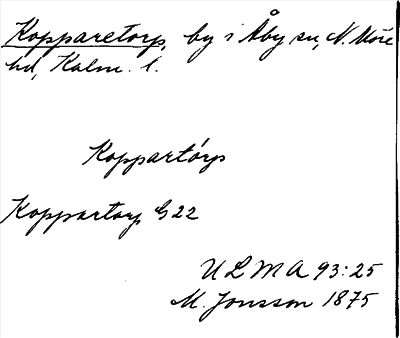 Kopparetorp, by i Åby sn, N. Möre
hd, Kalm. l.
Koppartórp
Koppartorp G 22
ULMA 93:25
M. Jonsson 1875